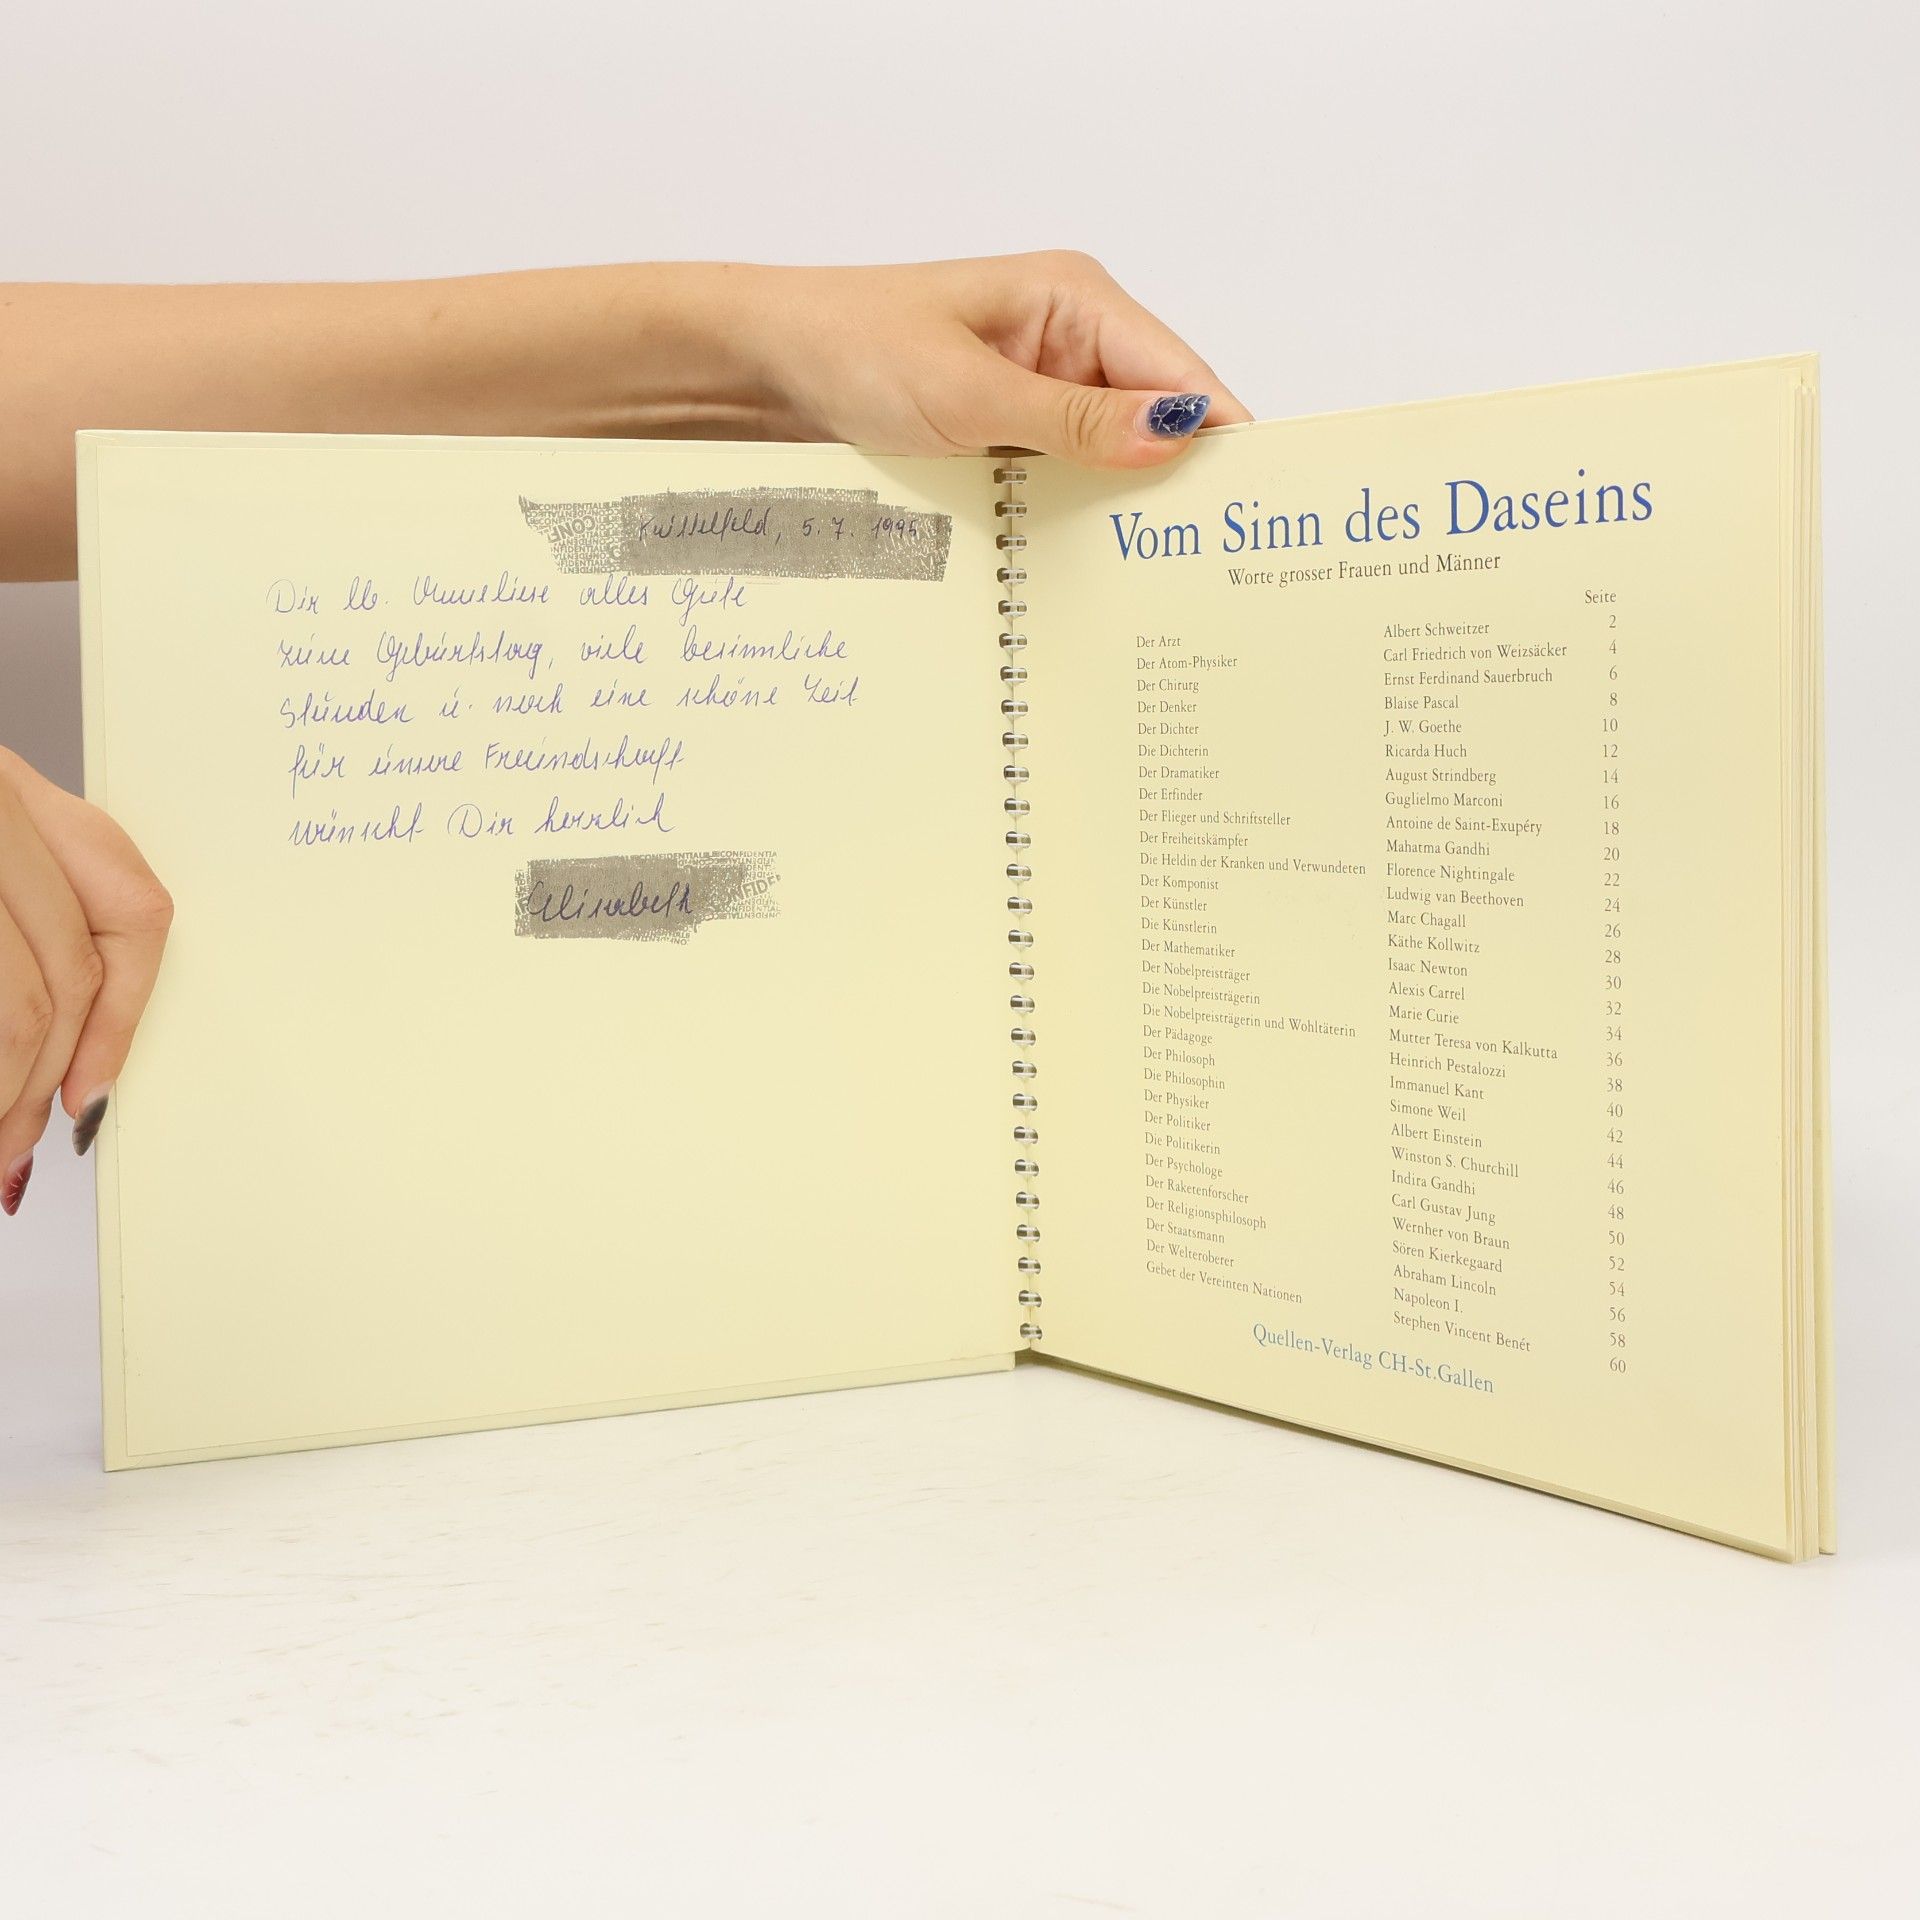 CONFIDENTIAL
Knittelfeld, 5.7.1995
Dir lb. Anneliese alles Gute
zum Geburtstag, viele besinnliche
Stunden u. noch eine schöne Zeit
für unsere Freundschaft
wünscht Dir herzlich
CONFIDENTIAL
Elisabeth
Vom Sinn des Daseins
Worte grosser Frauen und Männer
Seite
Der Arzt Albert Schweitzer 2
Der Atom-Physiker Carl Friedrich von Weizsäcker 4
Der Chirurg Ernst Ferdinand Sauerbruch 6
Der Denker Blaise Pascal 8
Der Dichter J. W. Goethe 10
Die Dichterin Ricarda Huch 12
Der Dramatiker August Strindberg 14
Der Erfinder Guglielmo Marconi 16
Der Flieger und Schriftsteller Antoine de Saint-Exupéry 18
Der Freiheitskämpfer Mahatma Gandhi 20
Die Heldin der Kranken und Verwundeten Florence Nightingale 22
Der Komponist Ludwig van Beethoven 24
Der Künstler Marc Chagall 26
Die Künstlerin Käthe Kollwitz 28
Der Mathematiker Isaac Newton 30
Der Nobelpreisträger Alexis Carrel 32
Die Nobelpreisträgerin Marie Curie 34
Die Nobelpreisträgerin und Wohltäterin Mutter Teresa von Kalkutta 36
Der Pädagoge Heinrich Pestalozzi 38
Der Philosoph Immanuel Kant 40
Die Philosophin Simone Weil 42
Der Physiker Albert Einstein 44
Der Politiker Winston S. Churchill 46
Die Politikerin Indira Gandhi 48
Der Psychologe Carl Gustav Jung 50
Der Raketenforscher Wernher von Braun 52
Der Religionsphilosoph Sören Kierkegaard 54
Der Staatsmann Abraham Lincoln 56
Der Welteroberer Napoleon I. 58
Gebet der Vereinten Nationen Stephen Vincent Benét 60
Quellen-Verlag CH-St.Gallen